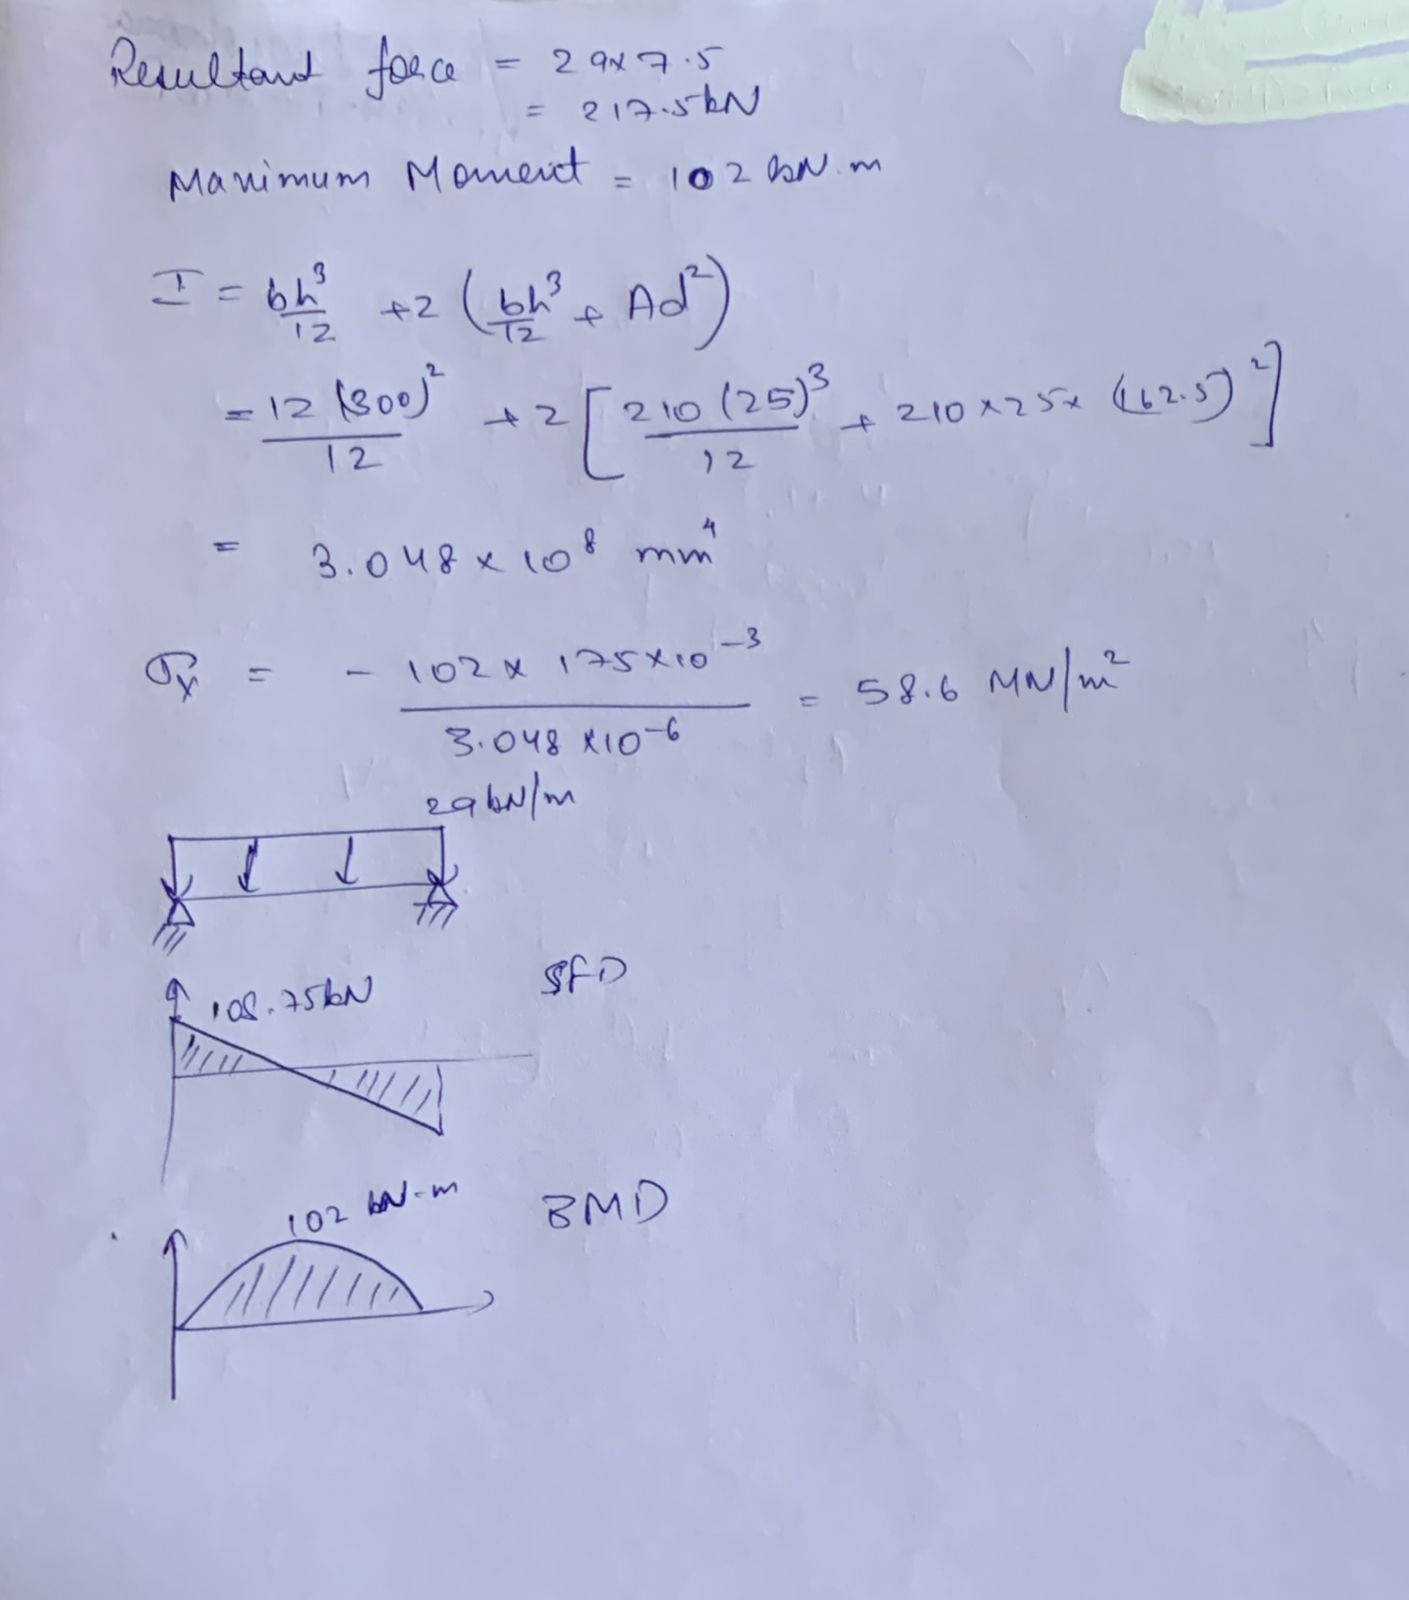 Resultant force = 29x7.5
= 217.5kN
Maximum Moment = 102 kN.m
I = bh³/12 + 2 (bh³/12 + Ad²)
= 12 (300)²/12 + 2 [210 (25)³/12 + 210x25x (162.5)²]
= 3.048 x 10⁸ mm⁴
σx = - 102 x 175x10⁻³ / 3.048 x10⁻⁶ = 58.6 MN/m²
29kN/m
SFD
108.75kN
102 kN-m
BMD